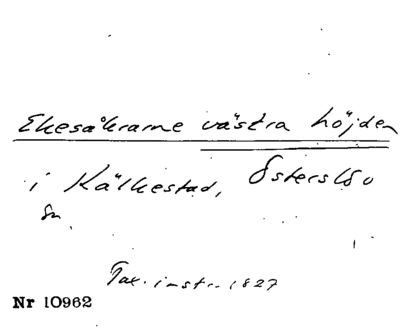 Ekesåkrarne västra höjden
i Kälkestad, Österslöv
sn
Tax. instr. 1827
Nr 10962